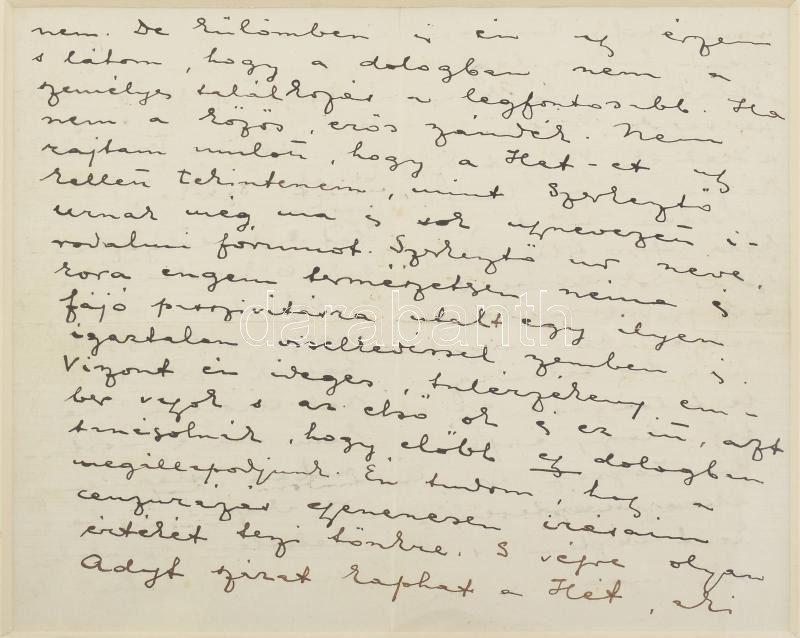 nem. De külömben is én úgy érzem
s látom, hogy a dologban nem a
személyes találkozás a legfontosabb. Ha
nem a közös, erős szándék. Nem
rajtam mulott, hogy a Hét-et úgy
kellett tekintenem, mint Szerkesztő
urnak még ma is sok ugynevezett i-
rodalmi fórumot. Szerkesztő ur neve,
kora engem természetesen néma és
fájó passzivitásra utalt egy ilyen
igaztalan viselkedéssel szemben is.
Viszont én ideges, tulérzékeny em-
ber vagyok s az első ok és ez itt, azt
tanácsolnák, hogy előbb egy dologban
megállapodjunk. Én tudom, hogy a
cenzurázás egyenesen irásaim
értékét teszi tönkre. S végre olyan
Adyt százat kaphat a Hét, aki
darabanth